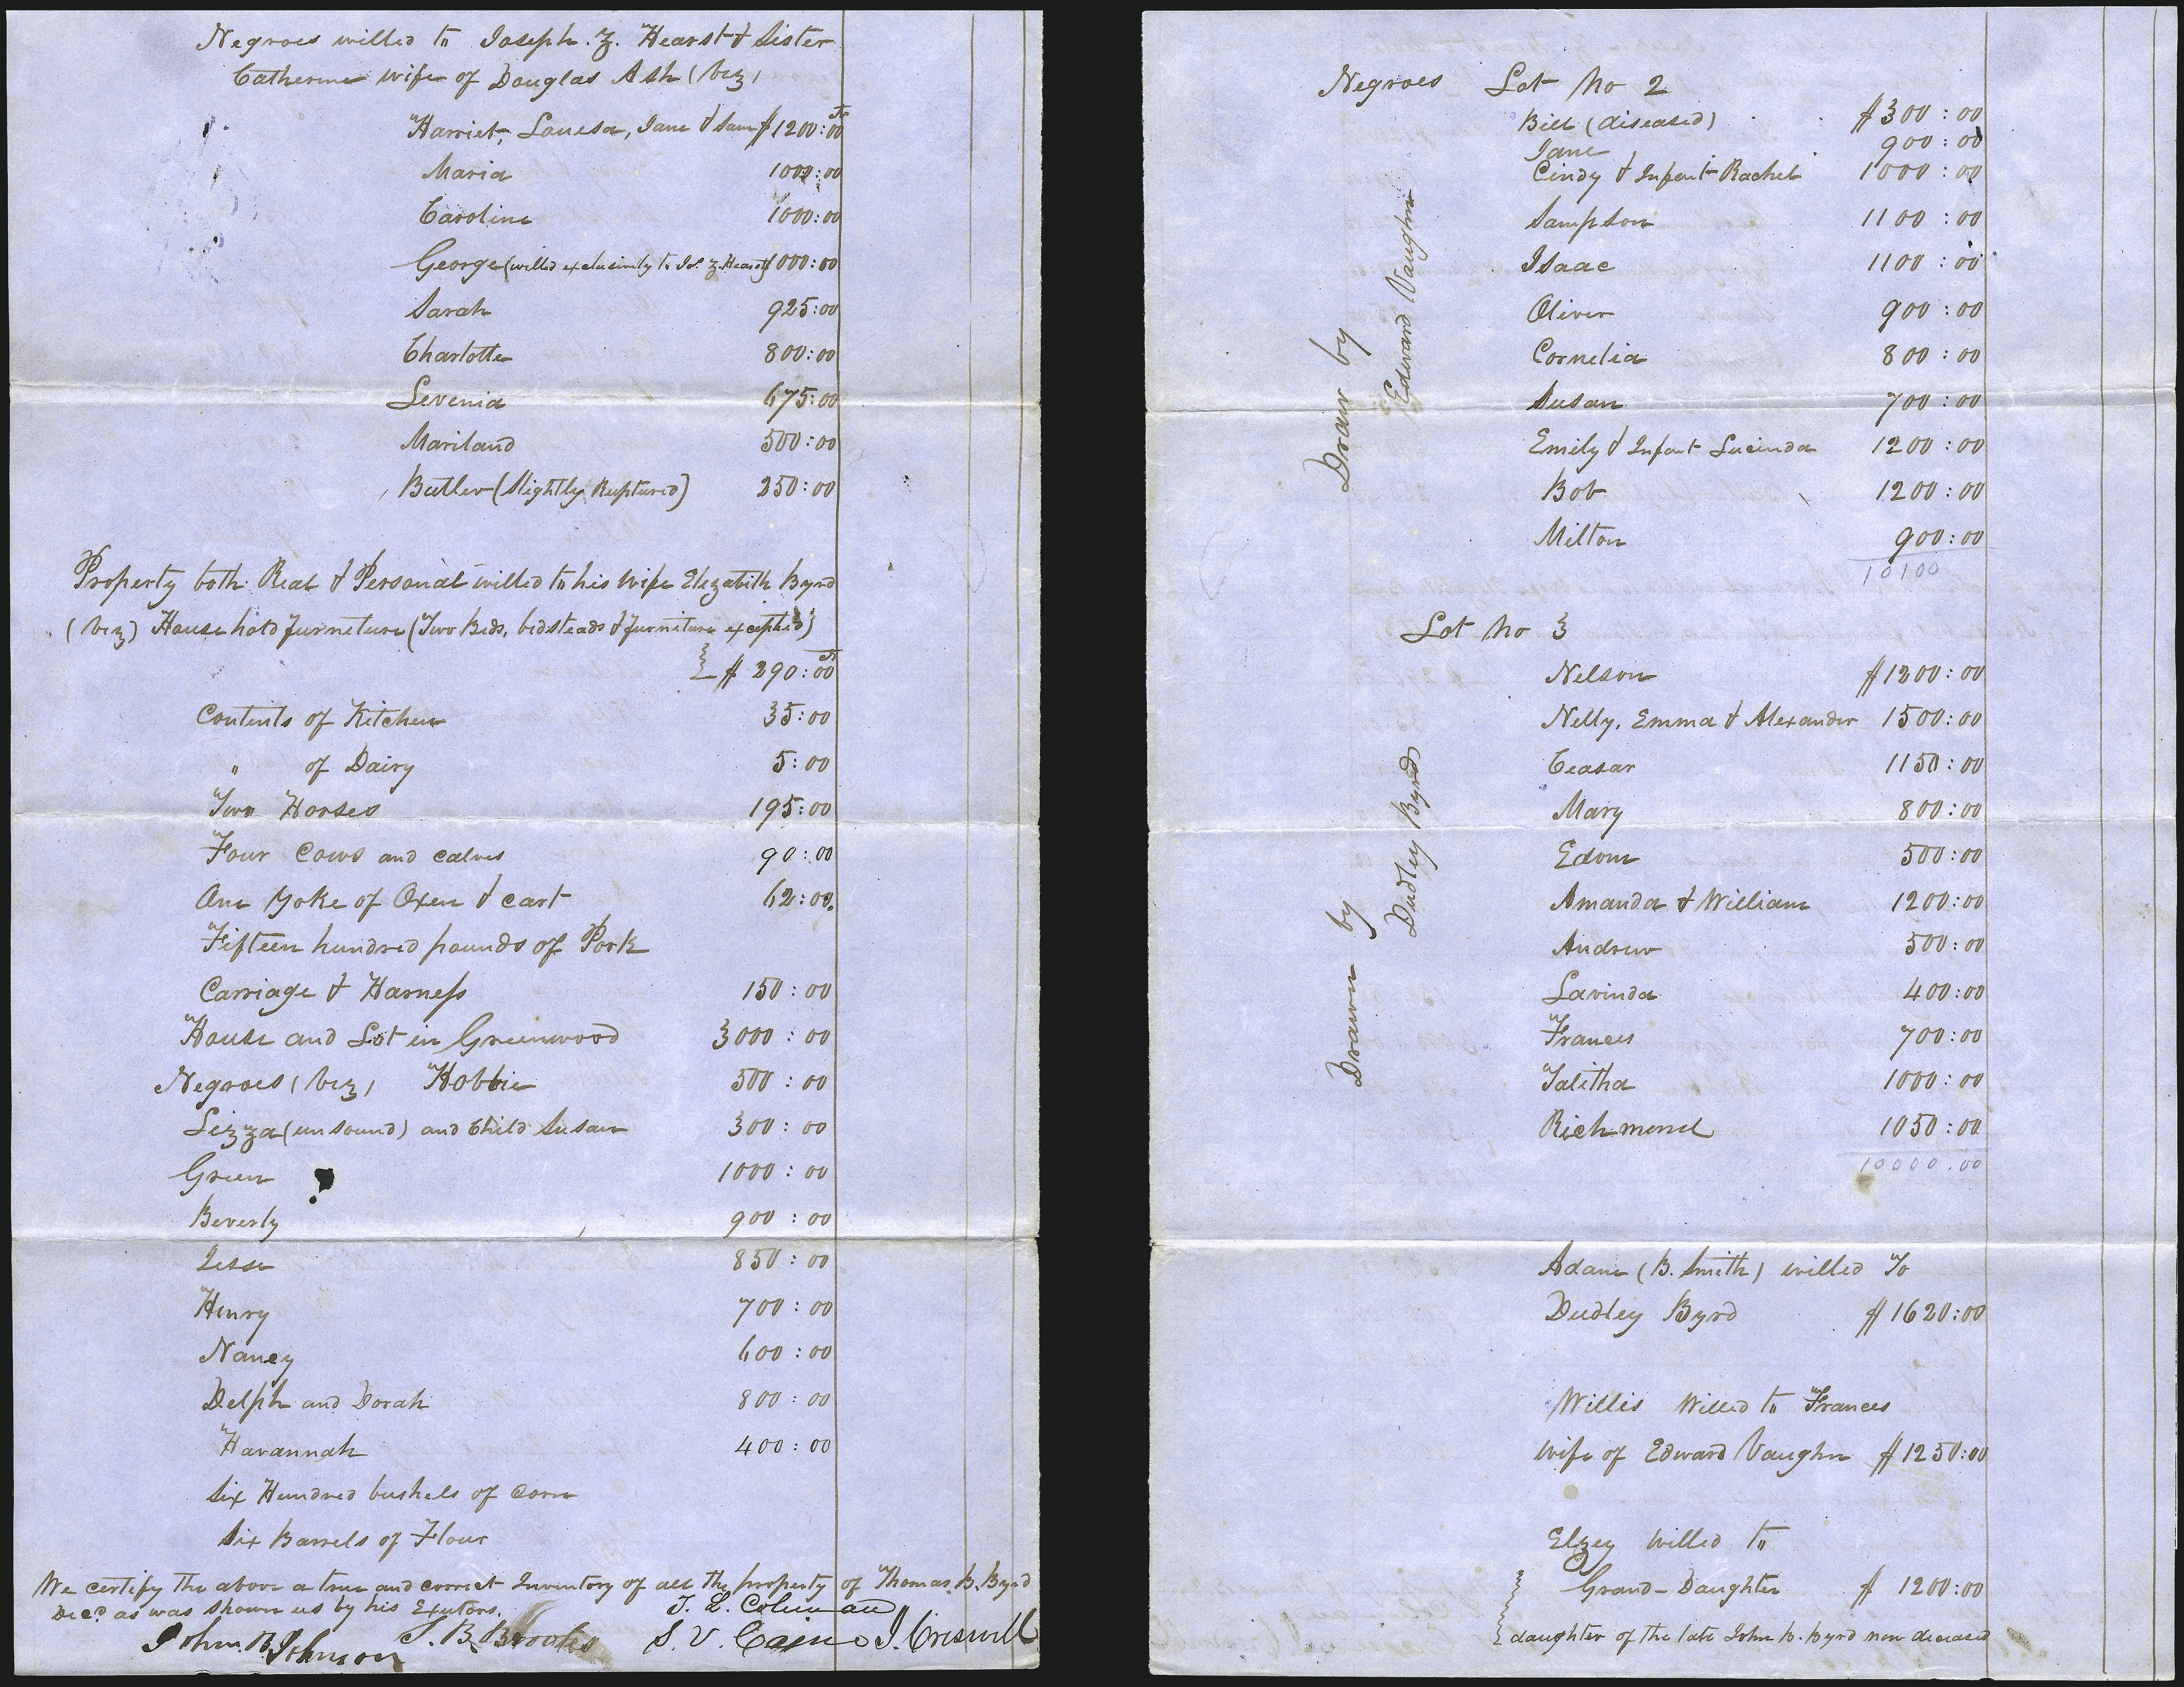 Negroes willed to Joseph. Z. Hearst & Sister
Catherine wife of Douglas Ash (viz)
Harriet, Louesa, Jane & Sam $1200:00
Maria 1000:00
Caroline 1000:00
George (willed exclusively to Jos. Z. Hearst) 1000:00
Sarah 925:00
Charlotte 800:00
Levenia 675:00
Mariland 500:00
Butler (Slightly Ruptured) 250:00
Property both Real & Personal willed to his wife Elizabeth Byrd
(viz) House hold furneture (Two Beds, bedsteads & furniture excepted)
$ 290:00
Contents of Kitchen 35:00
" of Dairy 5:00
Two Horses 195:00
Four Cows and calves 90:00
One Yoke of Oxen & cart 62:00
Fifteen hundred pounds of Pork
Carriage & Harness 150:00
House and Lot in Greenwood 3000:00
Negroes (viz) Hobbie 500:00
Lizza (unsound) and Child Susan 300:00
Green 1000:00
Beverly 900:00
Jesse 850:00
Henry 700:00
Nancy 600:00
Delph and Dorah 800:00
Havannah 400:00
Six Hundred bushels of Corn
Six Barrels of Flour
We certify the above a true and correct Inventory of all the property of Thomas. B. Byrd
Decd as was shown us by his Exutors.
T. L. Coleman
John. B. Johnson
S. B Brooks
S. V. Cain
J. Creswell
Negroes Lot No 2
Bill (diseased) $300:00
Jane 900:00
Cindy & Infant Rachel 1000:00
Sampson 1100:00
Isaac 1100:00
Oliver 900:00
Cornelia 800:00
Susan 700:00
Emily & Infant Lucinda 1200:00
Bob 1200:00
Milton 900:00
10100
Drawn by
Edward Vaughn
Lot No 3
Nelson $1200:00
Nelly, Emma & Alexander 1500:00
Ceasar 1150:00
Mary 800:00
Edom 500:00
Amanda & William 1200:00
Andrew 500:00
Lavinda 400:00
Frances 700:00
Talitha 1000:00
Richmond 1050:00
10000.00
Drawn by
Dudley Byrd
Adam (B. Smith) willed To
Dudley Byrd $1620:00
Willis Willed to Frances
wife of Edward Vaughn $1250:00
Elzey willed to
Grand-Daughter $ 1200:00
daughter of the late John B. Byrd now deceased